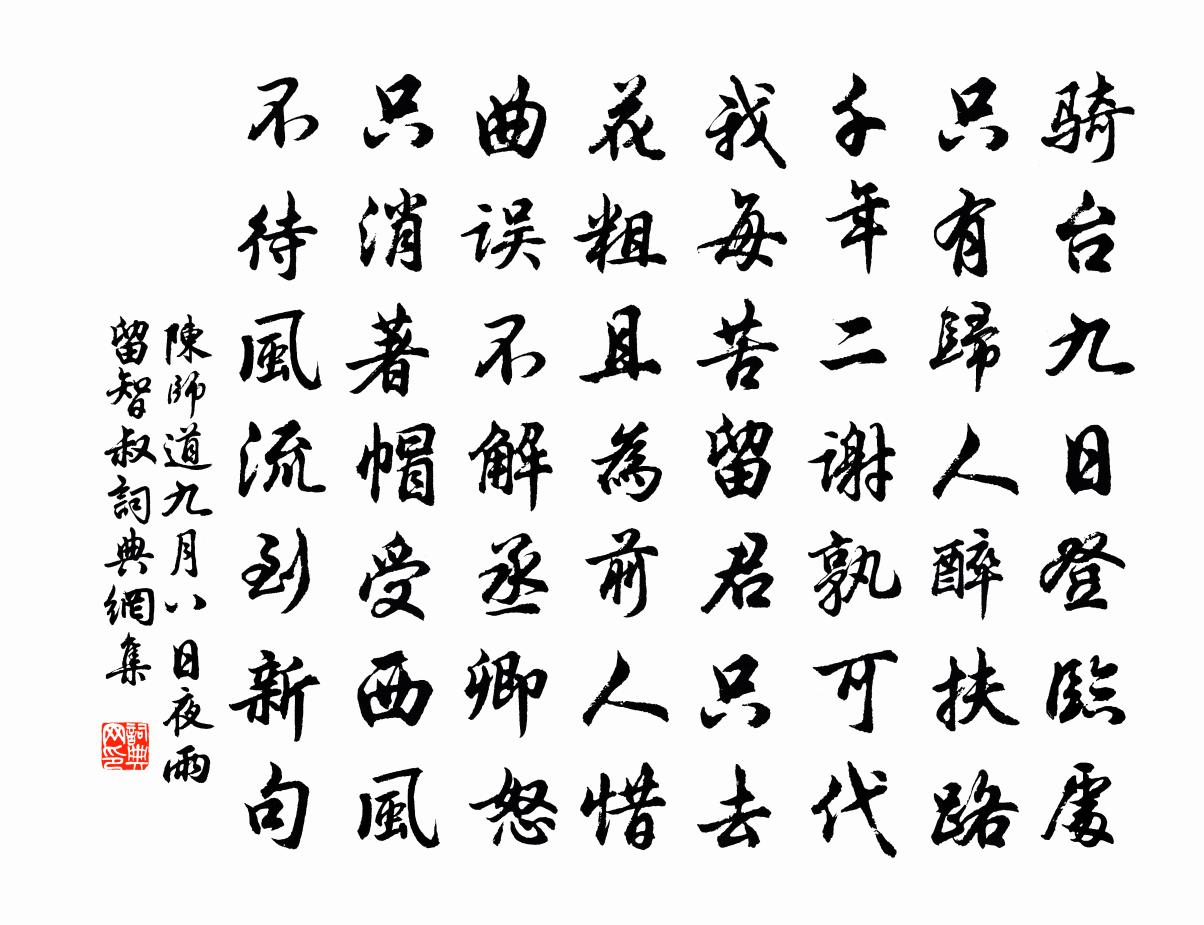 骑台九日登临處
只有歸人醉扶路
千年二谢孰可代
我每苦留君只去
花粗且為前人惜
曲误不解丞卿怒
只消著帽受西風
不待風流到新句
陳師道九月八日夜雨
留智叔詞典網集
詞典网印